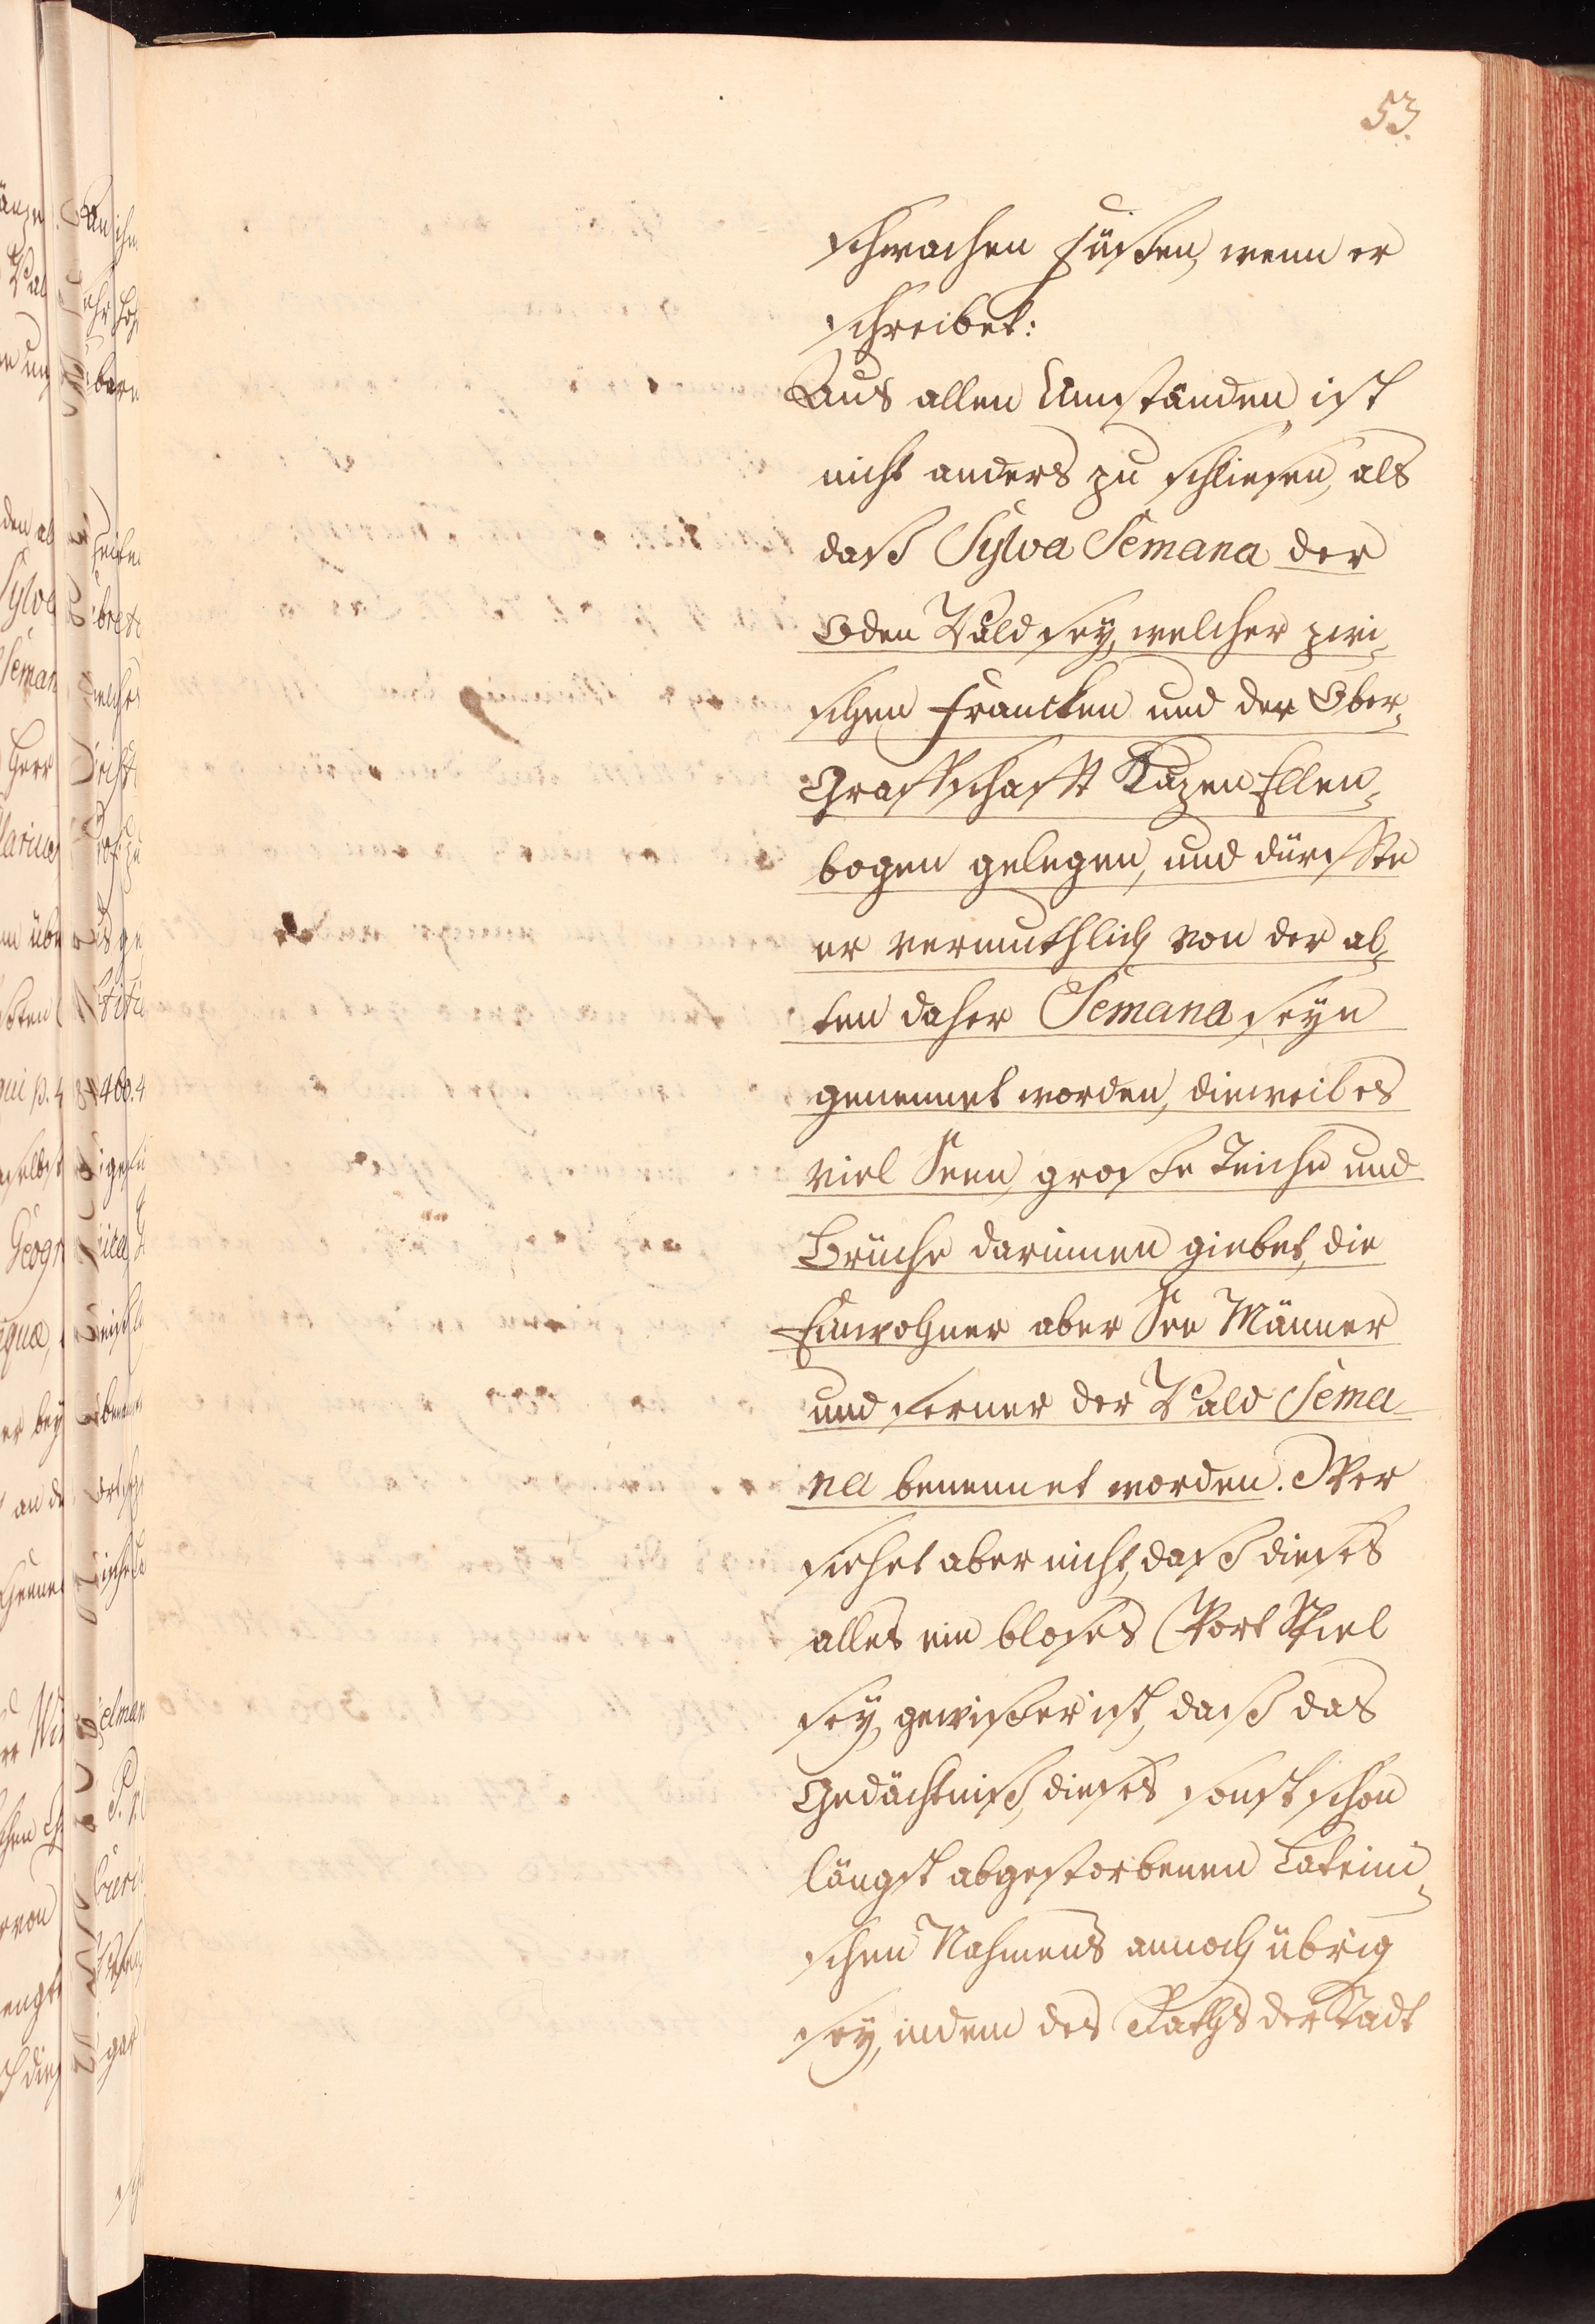 53.
schwachen Füßen, wenn er
schreibet:
Aus allen Umständen ist
nicht anders zu schliesen, als
daß Sylva Semana der
Oden Wald sey, welcher zwi-
schen Francken und der Ober-
Graffschafft Kazen Ellen-
bogen gelegen, und dürffte
er vermuthlich von der al-
ten daher Semana seyn
genennet worden, dieweil es
viel Seen, große Teiche und
Brüche darinnen giebet, die
Einwohner aber See Männer
und ferner der Wald Sema
na benennet worden. Wer
siehet aber nicht, daß dieses
alles ein bloses Wort Spiel
sey, gewißer ist, daß das
Gedächtniß, dieses sonst schon
längst abgestorbenen Lateini-
schen Nahmens annoch übrig
sey, indem des Raths der Stadt